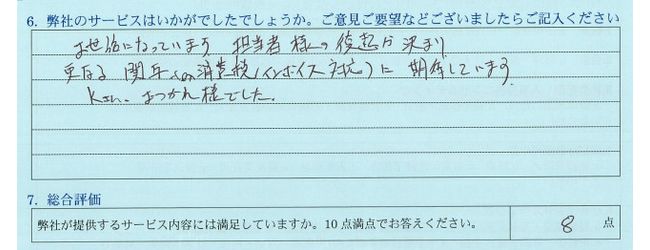 6. 弊社のサービスはいかがでしたでしょうか。ご意見ご要望などございましたらご記入ください
お世話になっています 担当者様の後起が決まり
更なる 関与への消費税(インボイス対応)に 期待しています
Kさん、おつかれ様でした。
7. 総合評価
弊社が提供するサービス内容には満足していますか。10点満点でお答えください。 8 点